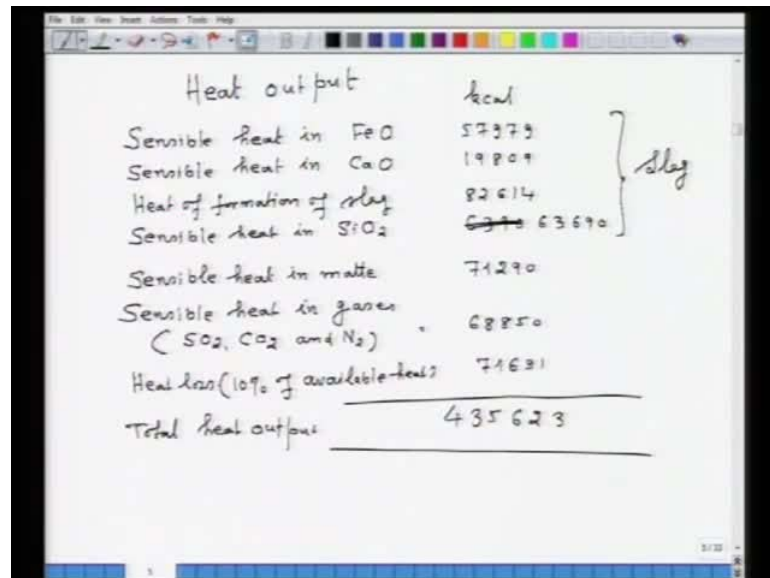 File Edit View Insert Actions Tools Help
Heat output
kcal
Sensible heat in FeO 57979
Sensible heat in CaO 19809
Heat of formation of slag 82614
Sensible heat in SiO2 63690
Slag
Sensible heat in matte 71290
Sensible heat in gases
(SO2, CO2 and N2) 68850
Heat loss (10% of available heat) 71631
Total heat output 435623
5/22
5